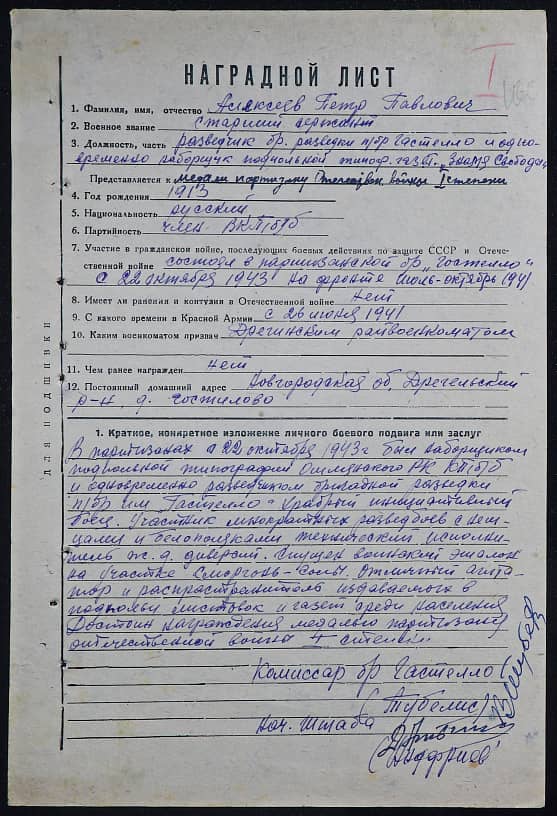 I
НАГРАДНОЙ ЛИСТ
1. Фамилия, имя, отчество Алексеев Петр Павлович
2. Военное звание старший сержант
3. Должность, часть разведчик бр. разведки п/бр Гастелло и одно-
временно наборщик подпольной типогр. газ. „Знамя Свободы"
Представляется к медали партизану Отечествен войны I степени
4. Год рождения 1913
5. Национальность русский
6. Партийность член ВКП/б/
7. Участие в гражданской войне, последующих боевых действиях по защите СССР и Отече-
ственной войне состоял в партизанской бр. „Гастелло"
с 22 октября 1943 на фронте июль-октябрь 1941
8. Имеет ли ранения и контузии в Отечественной войне нет
9. С какого времени в Красной Армии с 26 июня 1941
10. Каким военкоматом призван Дрегинским райвоенкоматом
11. Чем ранее награжден нет
12. Постоянный домашний адрес Новгородская об. Дрегельский
р-н д. Гостилово
ДЛЯ ПОДШИВКИ
1. Краткое, конкретное изложение личного боевого подвига или заслуг
В партизанах с 22 октября 1943 г был наборщиком
подпольной типографии Ошмянского РК КП/б/б
и одновременно разведчиком бригадной разведки
п/бр им Гастелло. Храбрый инициативный
боец. Участник многократных разведбоев с нем-
цами и белополяками технический исполни-
тель ж.д. диверсии. Спущен воинский эшалон
на участке Сморгонь-Солы. Отличный агита-
тор и распространитель издаваемых в
подпольи листовок и газет среди населения
Достоин награждения медалью партизану
отечественной войны I степени
Комиссар бр Гастелло
(Тубелис)
Нач. Штаба